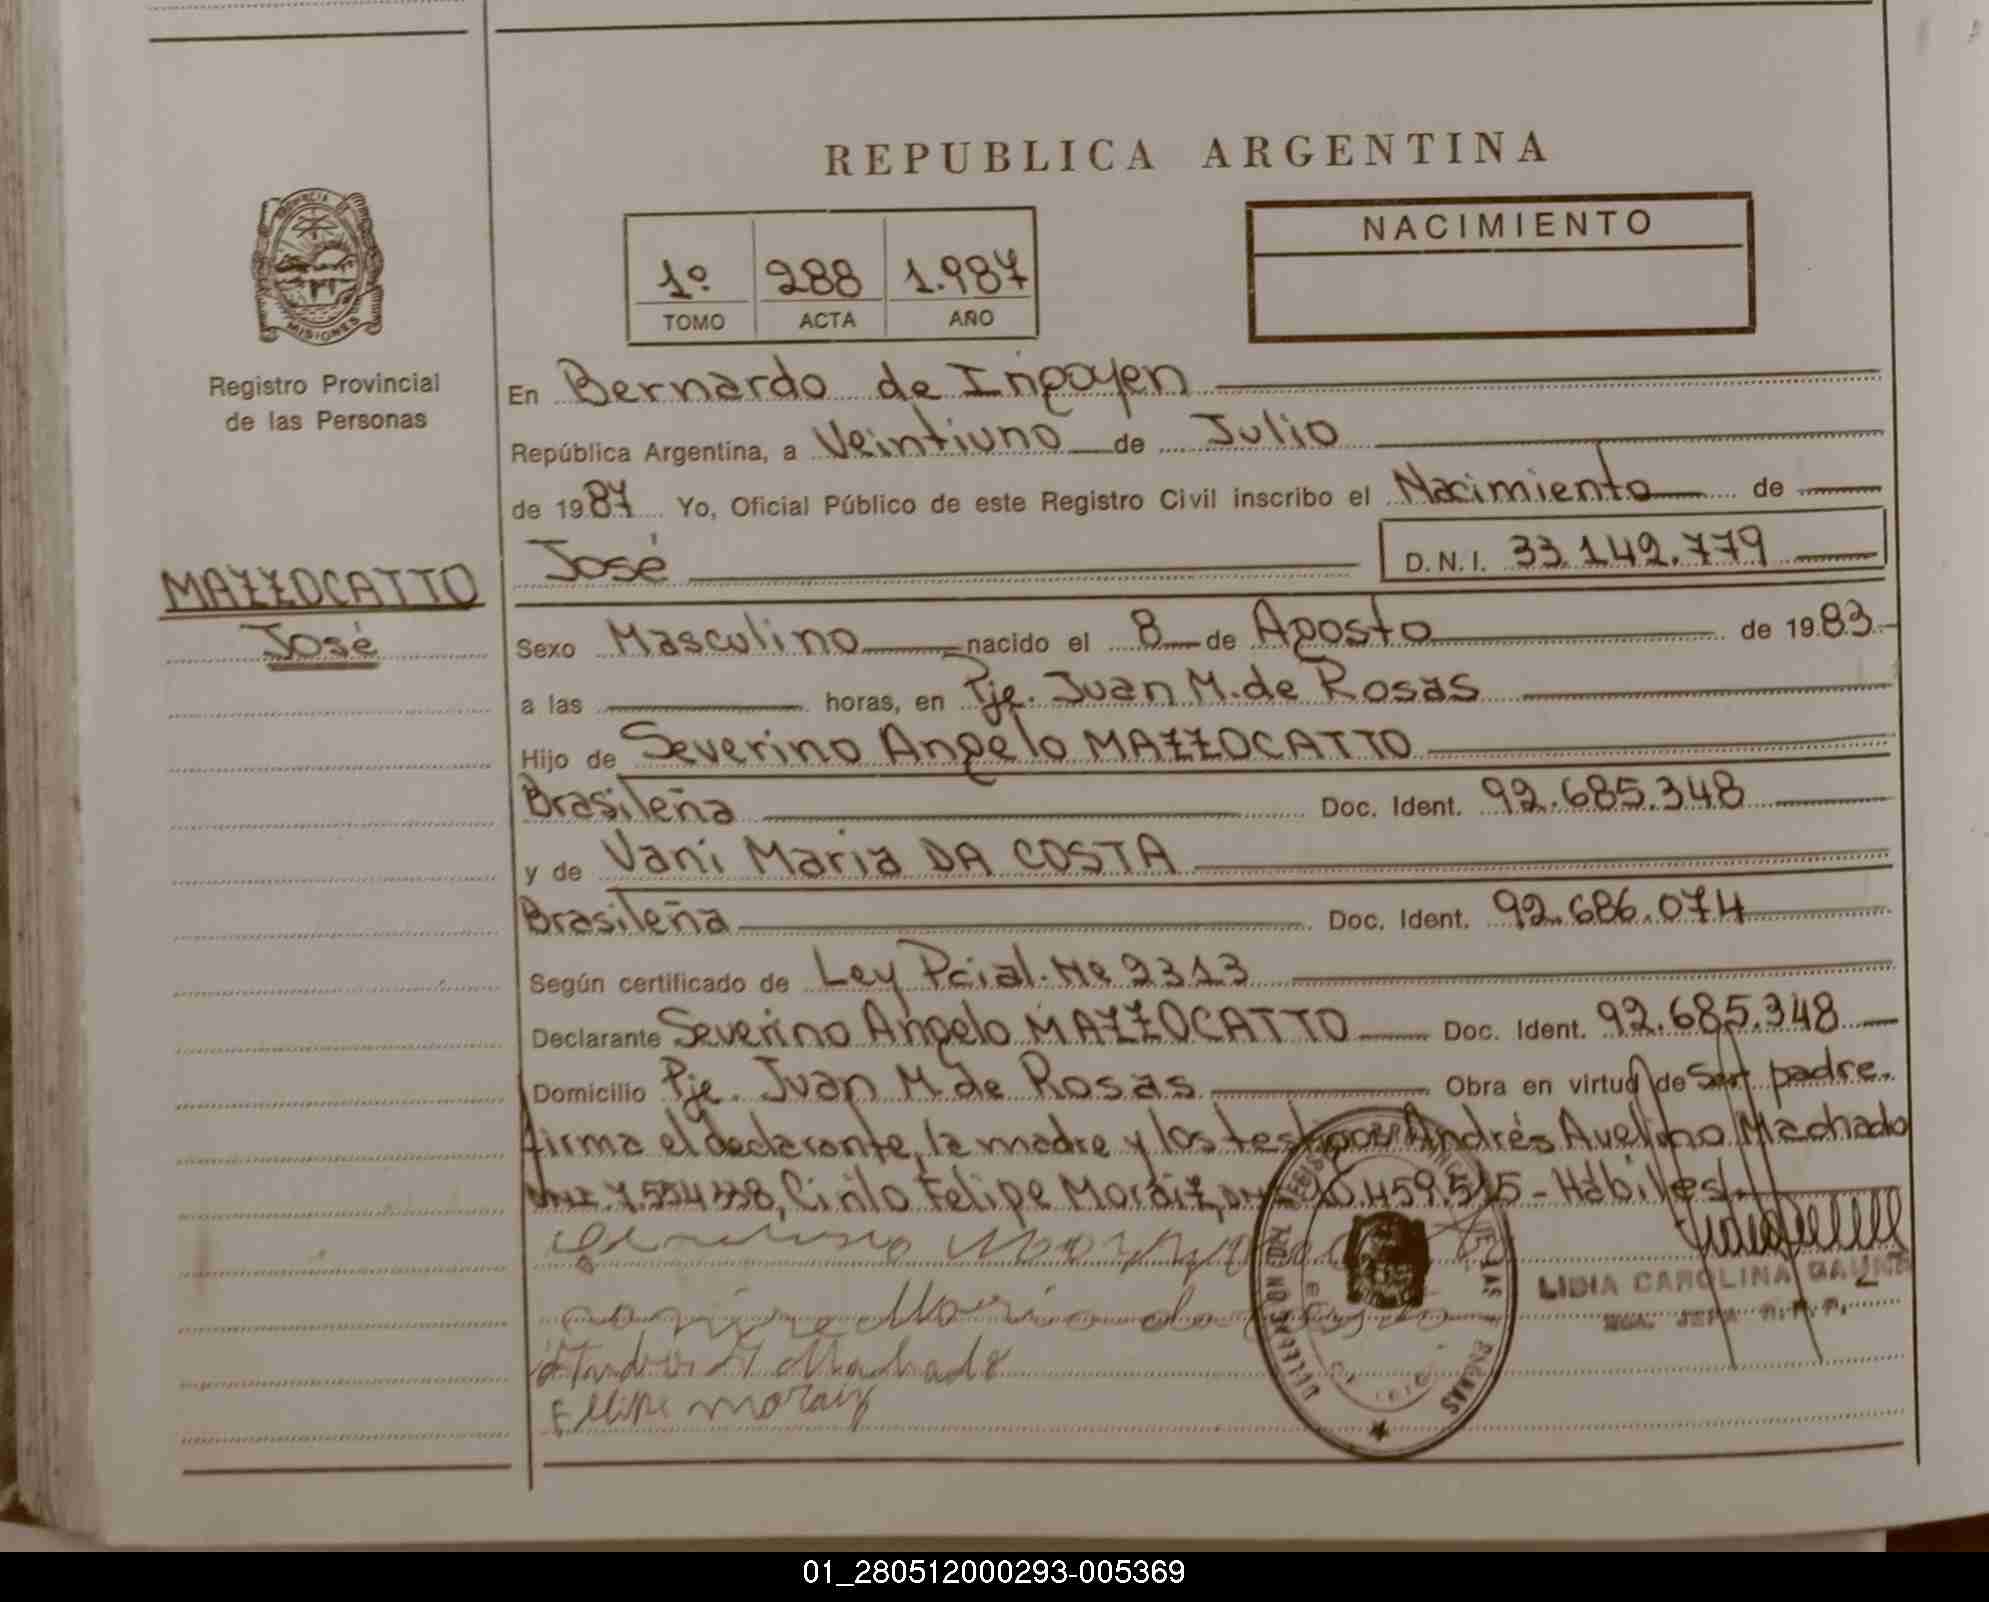 REPUBLICA ARGENTINA
PROVINCIA DE
MISIONES
Registro Provincial
de las Personas
1º 288 1.987
TOMO ACTA AÑO
NACIMIENTO
En Bernardo de Irigoyen
República Argentina, a Veintiuno de Julio
de 1987 Yo, Oficial Público de este Registro Civil inscribo el Nacimiento de
José D.N.I. 33.142.779
MAZZOCATTO
José
Sexo Masculino nacido el 8 de Agosto de 1983
a las horas, en Pje. Juan M. de Rosas
Hijo de Severino Angelo MAZZOCATTO
Brasileña Doc. Ident. 92.685.348
y de Vani Maria DA COSTA
Brasileña Doc. Ident. 92.686.074
Según certificado de Ley Pcial. Nº 2313
Declarante Severino Angelo MAZZOCATTO Doc. Ident. 92.685.348
Domicilio Pje. Juan M. de Rosas Obra en virtud de Ser padre.
firma el declarante, la madre y los testigos: Andrés Avelino Machado
7.554.338, Cirilo Felipe Moraiz, 459.515 - Hábiles.
Maria da
Machado
Felipe moraiz
LIDIA CAROLINA
01_280512000293-005369